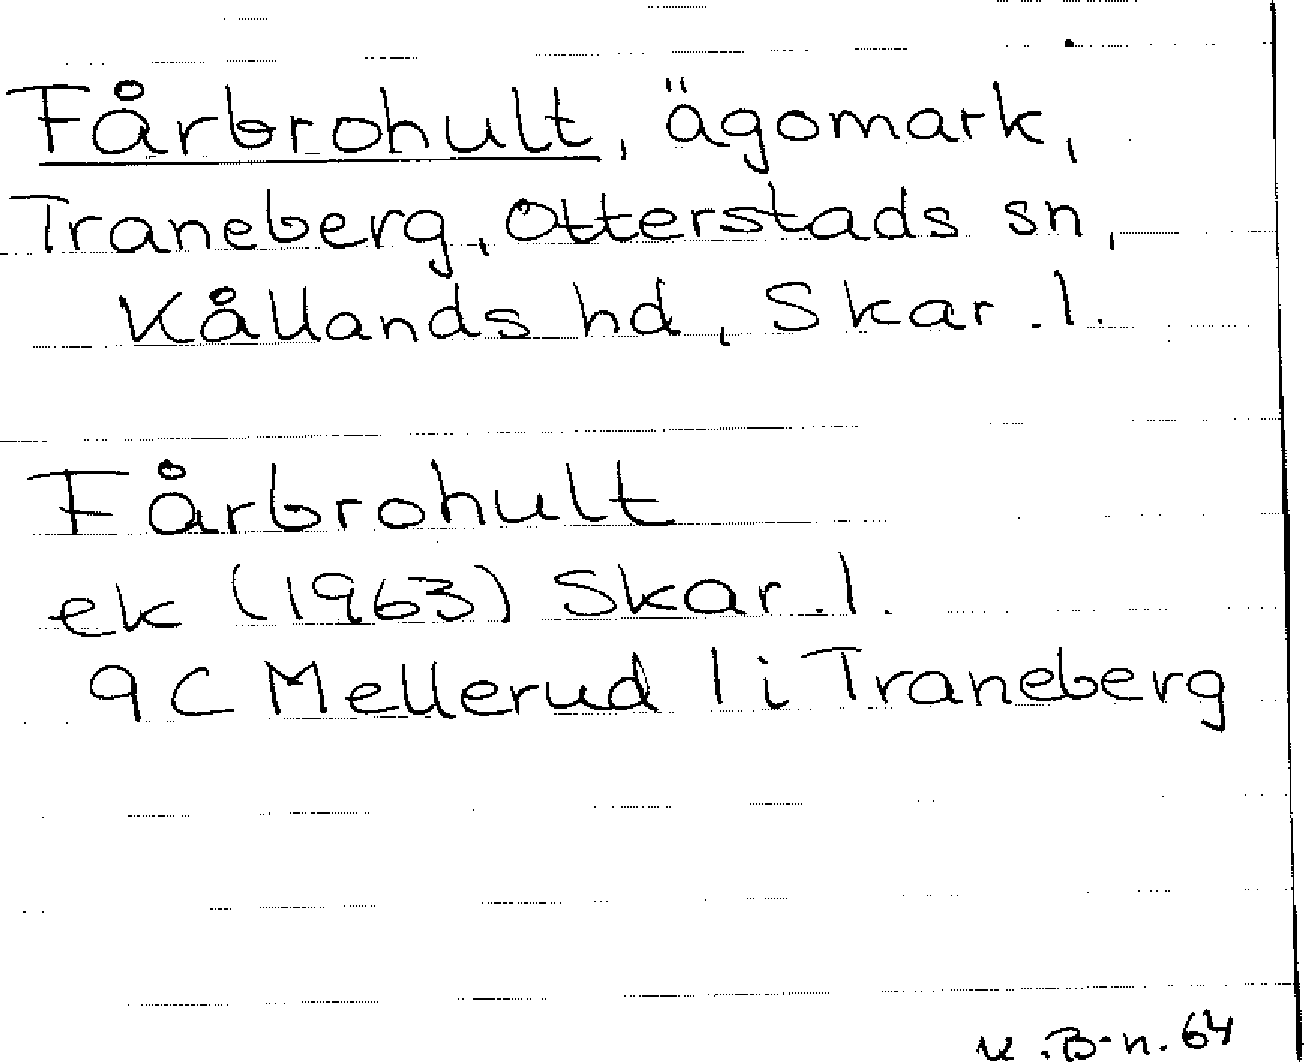 Fårbrohult, ägomark,
Traneberg, Otterstads sn,
Kållands hd, Skar. l.
Fårbrohult
ek (1963) Skar. l.
9C Mellerud l i Traneberg
K. B-n. 64